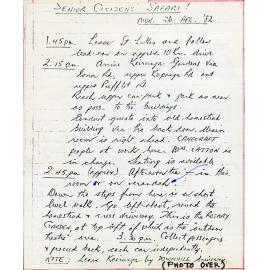 SENIOR CITIZENS SAFARI!
MON. 26 APR. '82
1.45 pm. Leave St Lukes and follow
lead-car on approx 1/2 hr. drive
2.15 pm. Arrive Kerinya Gardens via
Road, upper Kopanga Rd and
upper Puff'ld Rd.
Reach upper car-park & park as near
as poss. to the buildings.
Conduct guests into old homestead
building via the back door. Main
room is right ahead. CANECRAFT
people at work here. Mrs. CATTON is
in charge. Seating is available
2.45 pm (approx). Afternoon tea in this
room or on verandah
Down the steps from here is a short
Duel walk. Go left about, round the
homestead & cross driveway. This is the ROTARY
GARDEN at top left of which is the outdoor
theatre area. 3.30 pm. Collect passengers
& proceed back, each car independently
NOTE: Leave Kerinya by DOWNHILL driveway
(PHOTO OVER)